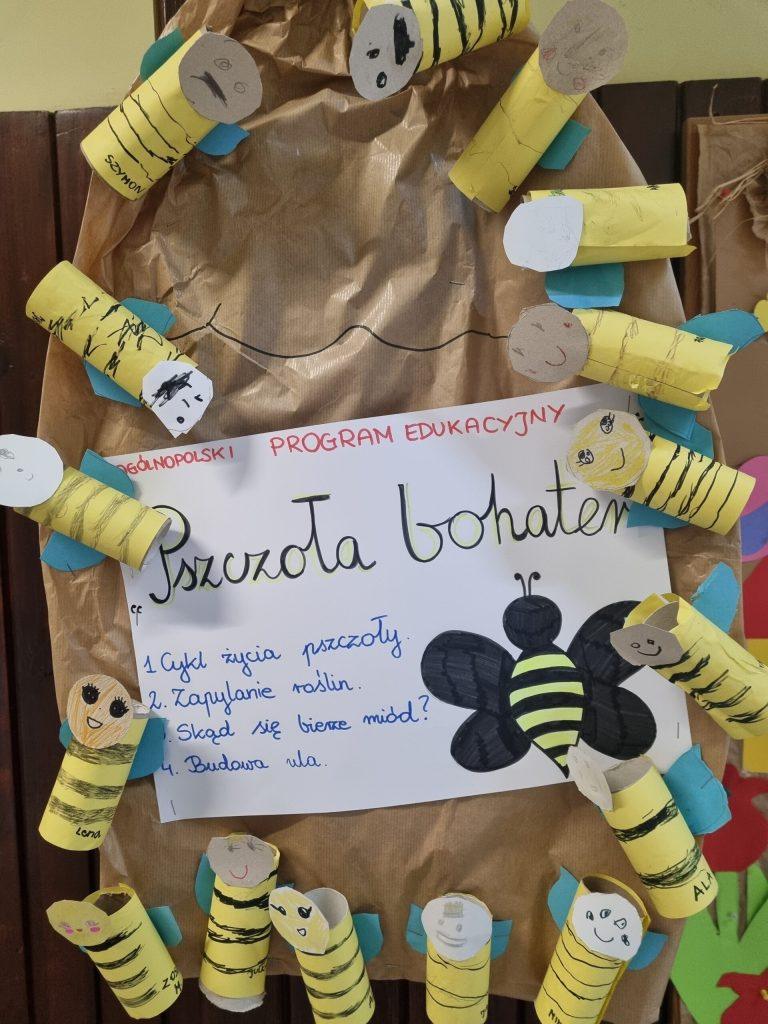 SZYMON
OGÓLNOPOLSKI PROGRAM EDUKACYJNY
Pszczoła bohater
1 Cykl życia pszczoły.
2. Zapylanie roślin.
3. Skąd się bierze miód?
4. Budowa ula.
Lena
ALA